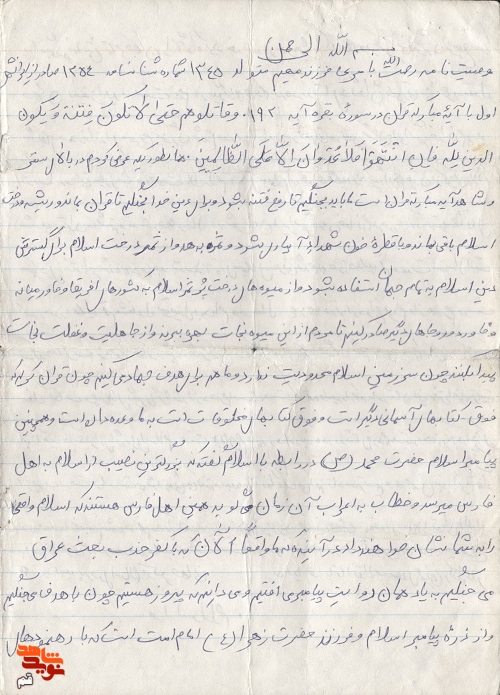 بسم الله الرحمن
وصیت نامه رحمت الله باسری فرزند متولد ۱۳۴۵ شماره شناسنامه ۱۲۵۴ صادره از
اول با آیه مبارکه قران در سورهٔ بقره آیه ۱۹۲. وقاتلوهم حتی لا تکون فتنة و یکون
الدین لله فاِن انتَهَوْا فلا عُدوانَ الّا علَی الظّالِمینَ همانطور که عرض کردم در بالا
و شاهد آیه مبارکه قران است ما باید بجنگیم تا رفع فتنه بشود و برای دین خدا بجنگیم تا قران بماند و ریشه درخت
اسلام باقی بماند و با قطره خون شهداء آبیاری بشود و ثمره بدهد و از ثمر درخت اسلام برای گسترش
دین اسلام به تمام جهان استفاده بشود و از میوه های درخت پر ثمر اسلام به کشورهای افریقا و خاورمیانه
و خاور دور و جاهای دیگر صادر کنیم تا مردم از این میوه نجات بهره ببرند و از جاهلیت و غفلت نجات
پیدا کنند چون سرزمین اسلام محدودیت ندارد و ما هم برای هدف جهاد می کنیم چون قران کریم که
فوق کتابهای آسمانی دیگر است و فوق کتابهای مخلوقات است به ما وعده داده است و همچنین
پیامبر اسلام حضرت محمد (ص) در رابطه با اسلام گفته که بزرگترین نصیب از اسلام به اهل
فارس میرسد و خطاب به اعراب آن زمان می گوید همین اهل فارس هستند که اسلام واقعی
را به شما نشان خواهند داد در آینده که ما واقعاً الآن که با کفر حزب بعث عراق
می جنگیم به یاد همان روایت پیامبر می افتیم و می دانیم که پیروز هستیم چون با هدف می جنگیم
و از ذرّیهٔ پیامبر اسلام و فرزند حضرت زهرا (ع) امام امت است که با رهنمودهای
شاهد
نوید
قم